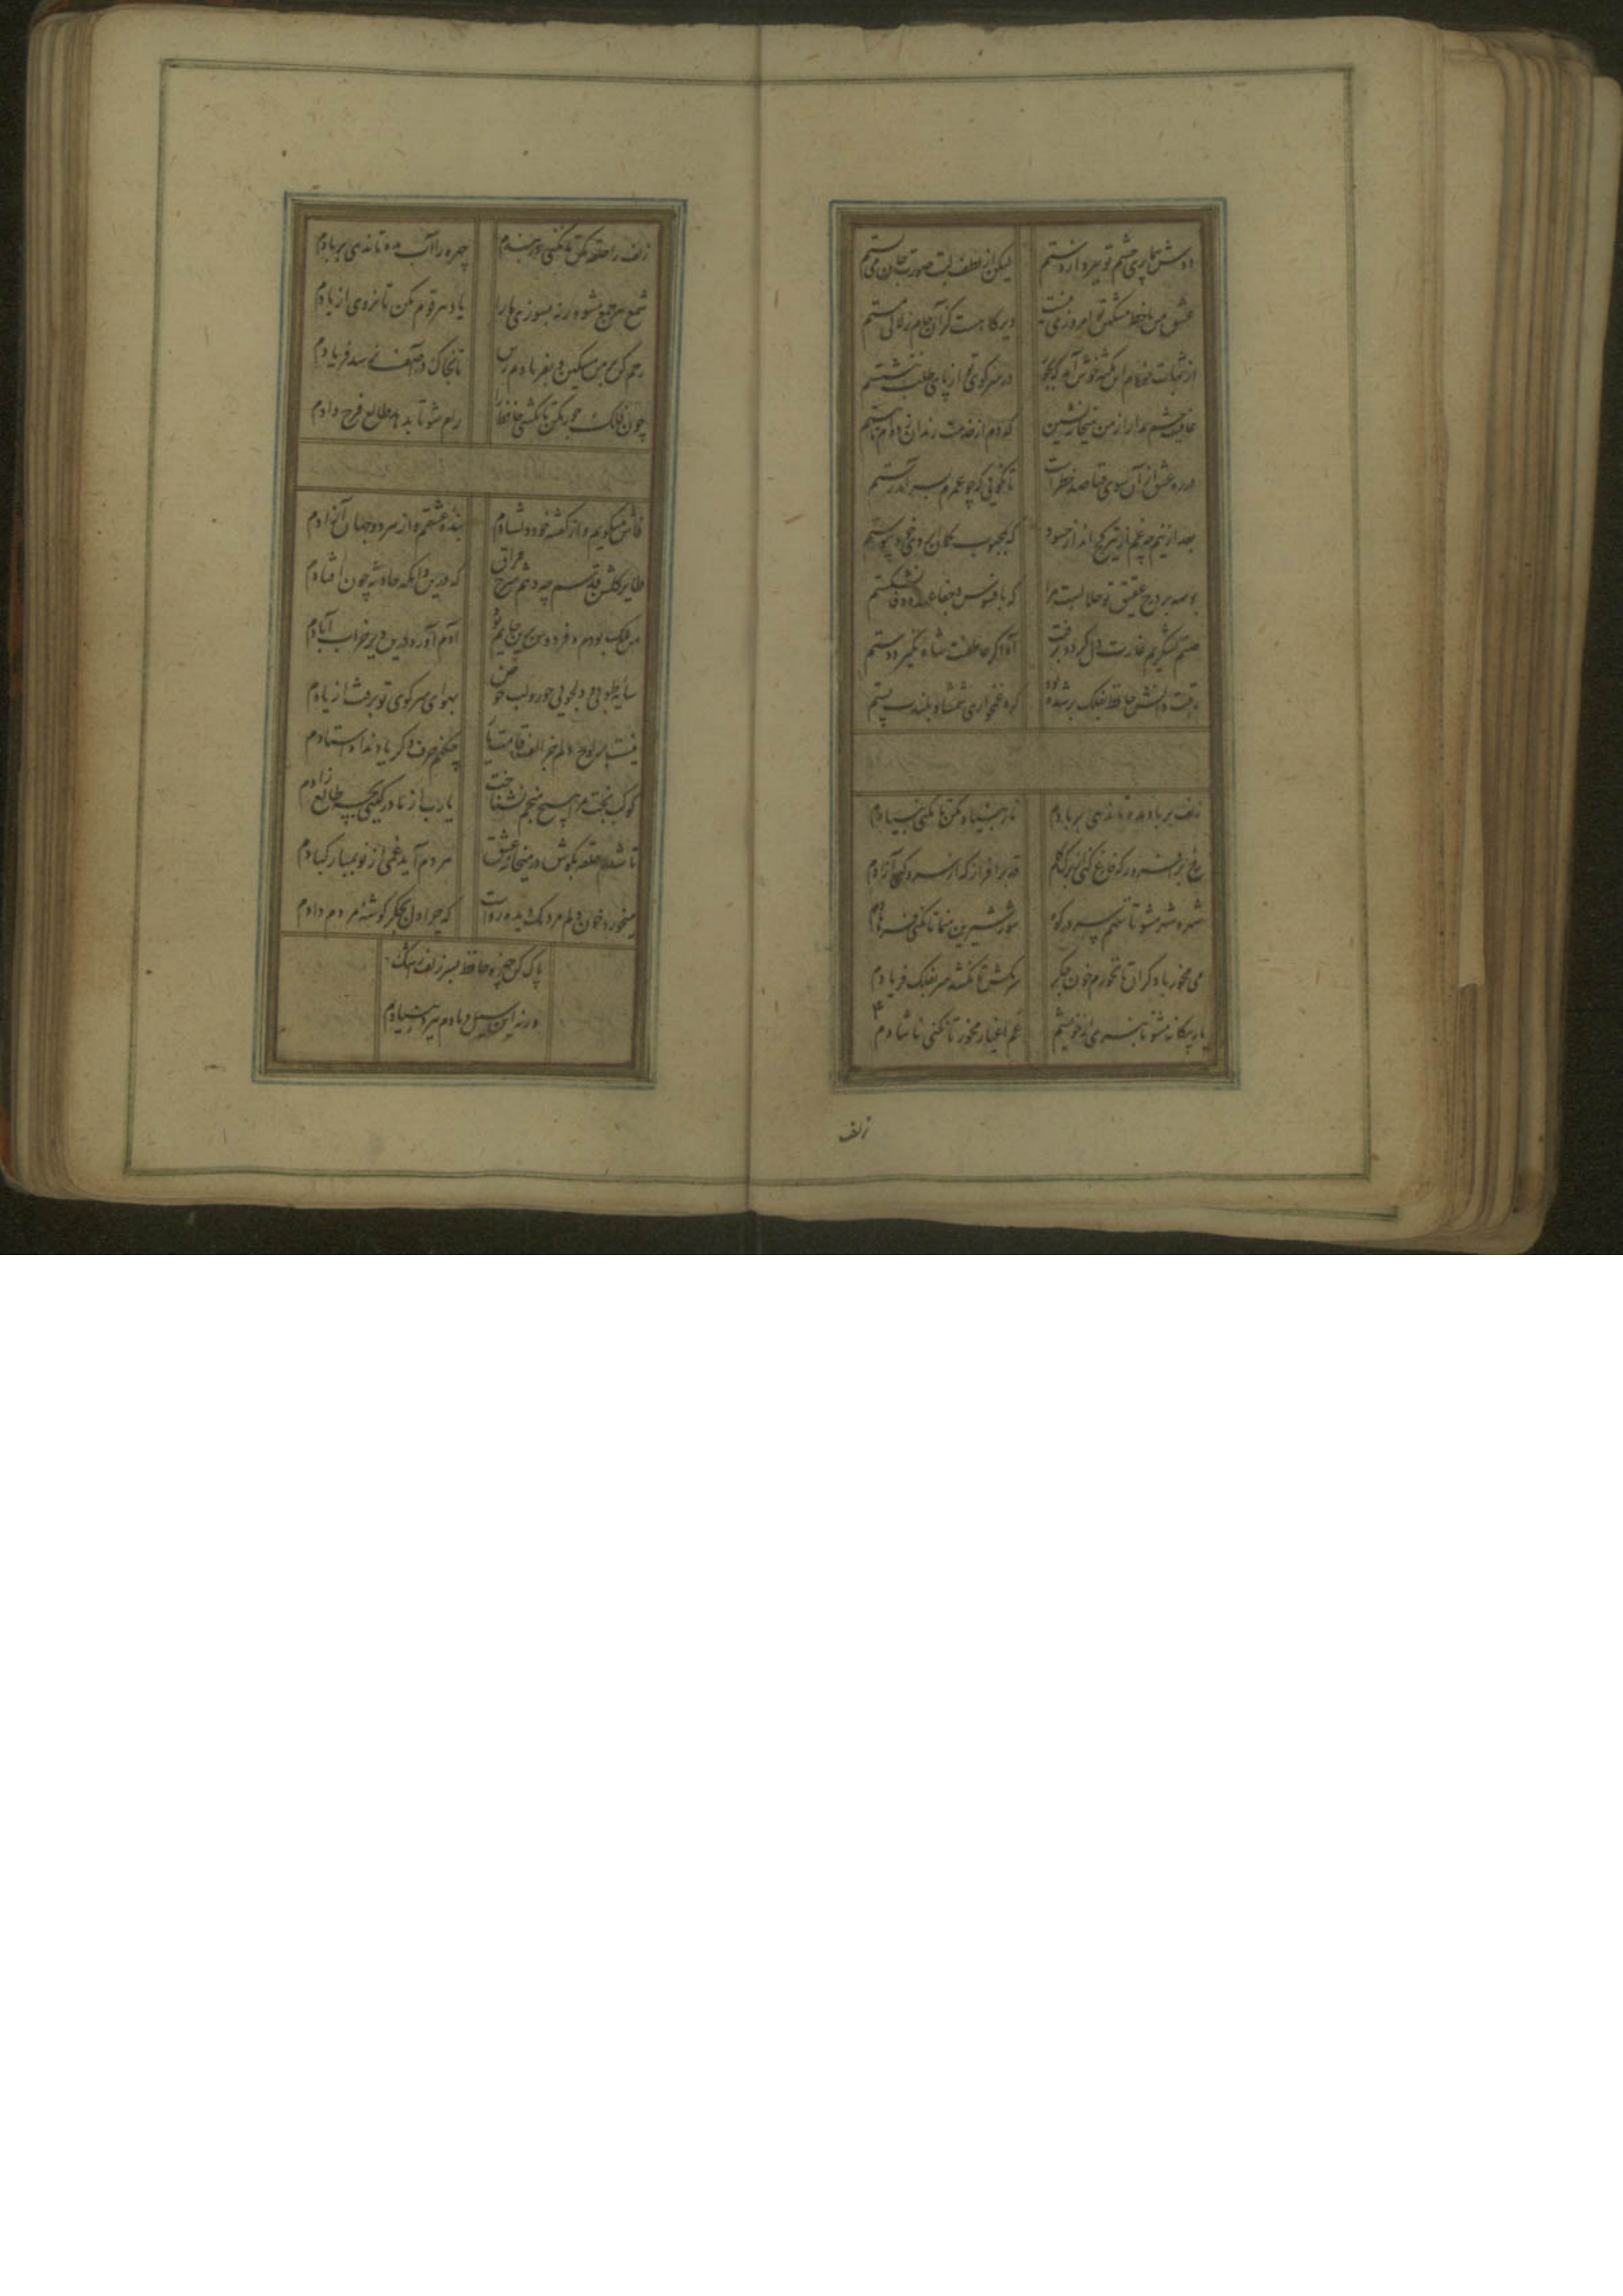 دوش بیماری چشم تو ببرد از دستم لیکن از لطف لبت صورت جان می بستم
عشق من با خط مشکین تو امروزی نیست دیرگاهست کزان جام هلالی مستم
از ثبات خودم این نکته خوش آمد که بجور در سر کوی تو از پای طلب ننشستم
عافیت چشم مدار از من میخانه نشین که دم از خدمت رندان زده ام تا هستم
در ره عشق از آن سوی فنا صد خطر است تا نگویی که چو عمرم بسر آمد رستم
بعد ازینم چه غم از تیر کج انداز حسود که بمحبوب کمان ابروی خود پیوستم
بوسه بر درج عقیق تو حلالست مرا که بافسوس و جفا عهد وفا نشکستم
صنم لشکریم غارت دل کرد و برفت آه اگر عاطفت شاه نگیرد دستم
رتبت دانش حافظ بفلک بر شده بود کرد غمخواری شمشاد بلندت پستم
زلف بر باد مده تا ندهی بر بادم ناز بنیاد مکن تا نکنی بنیادم
رخ برافروز که فارغ کنی از برگ گلم قد برافراز که از سرو کنی آزادم
شهره شهر مشو تا ننهم سر در کوه شور شیرین منما تا نکنی فرهادم
می مخور با دگران تا نخورم خون جگر سر مکش تا نکشد سر بفلک فریادم
یار بیگانه مشو تا نبری از خویشم غم اغیار مخور تا نکنی ناشادم
زلف
زلف را حلقه مکن تا نکنی در بندم چهره را آب مده تا ندهی بر بادم
شمع هر جمع مشو ورنه بسوزی ما را یاد هر قوم مکن تا نروی از یادم
رحم کن بر من مسکین و بفریادم رس تا بخاک در آصف نرسد فریادم
چون فلک جور مکن تا نکشی حافظ را رام شو تا بدهد طالع فرخ دادم
فاش میگویم و از گفته خود دلشادم بنده عشقم و از هر دو جهان آزادم
طایر گلشن قدسم چه دهم شرح فراق که درین دامگه حادثه چون افتادم
من ملک بودم و فردوس برین جایم بود آدم آورد درین دیر خراب آبادم
سایه طوبی و دلجویی حور و لب حوض بهوای سر کوی تو برفت از یادم
نیست بر لوح دلم جز الف قامت یار چکنم حرف دگر یاد نداد استادم
کوکب بخت مرا هیچ منجم نشناخت یارب از مادر گیتی بچه طالع زادم
تا شدم حلقه بگوش در میخانه عشق هر دم آید غمی از نو بمبارکبادم
میخورد خون دلم مردمک دیده رواست که چرا دل بجگر گوشه مردم دادم
پاک کن چهره حافظ بسر زلف ز اشک
ورنه این سیل دمادم ببرد بنیادم